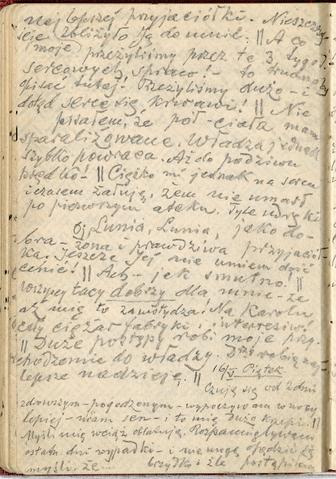 mej lepszej przyjaciółki. Nieszczęś-
cie zbliżyło ją do mnie. || A co
moje przeżyliśmy przez te 3 tygo
sercowych, to trudno
pisać tutaj. Przeżyliśmy dużo – i
dotąd serce się krwawi! || Nie
pisałem, że pół-ciała mam
sparaliżowane. Władza jednak
szybko powraca. Aż do podziwu
prędko! || Ciężko mi jednak na sercu
i czasem żałuję, żem nie umarł
po pierwszym ataku. Tyle
Oj Lunia, Lunia, jako do-
bra – żona i prawdziwa przyjaciół
ka. Jeszcze jej nie umiem dość
cenić! || Ach – jak smutno! ||
wszyscy tacy dobrzy dla mnie – że
aż mię to zawstydza. Na Karolu
cały ciężar fabryki,
|| Duże postępy robi moje przy-
chodzenie do władzy. Dziś robią naj-
lepsze nadzieje. ||
16/ Piątek
Czuję się od 2 dni
zdrowszym – pogodzonym – wypoczywam w nocy
lepiej – mam sen – i to mię dużo krzepi. ||
Myśli mię wciąż oblatują. Rozpamiętywam
ostatn. dni wypadki – i nie mogę
myśli, że... brzydko i źle postąpiłem